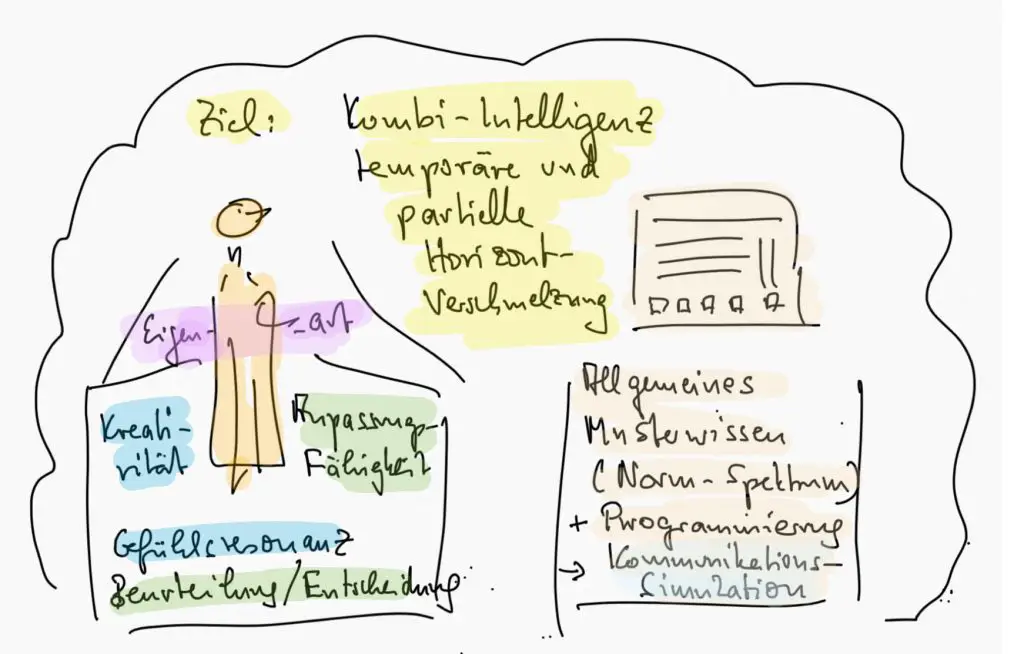 Ziel: Kombi-Intelligenz
temporäre und
partielle
Horizont-
verschmelzung
Eigen-art
Kreati-
vität
Anpassungs-
Fähigkeit
Gefühlsresonanz
Beurteilung/Entscheidung
Allgemeines
Musterwissen
(Norm-Spektrum)
+ Programmierung
→ Kommunikations-
Simulation